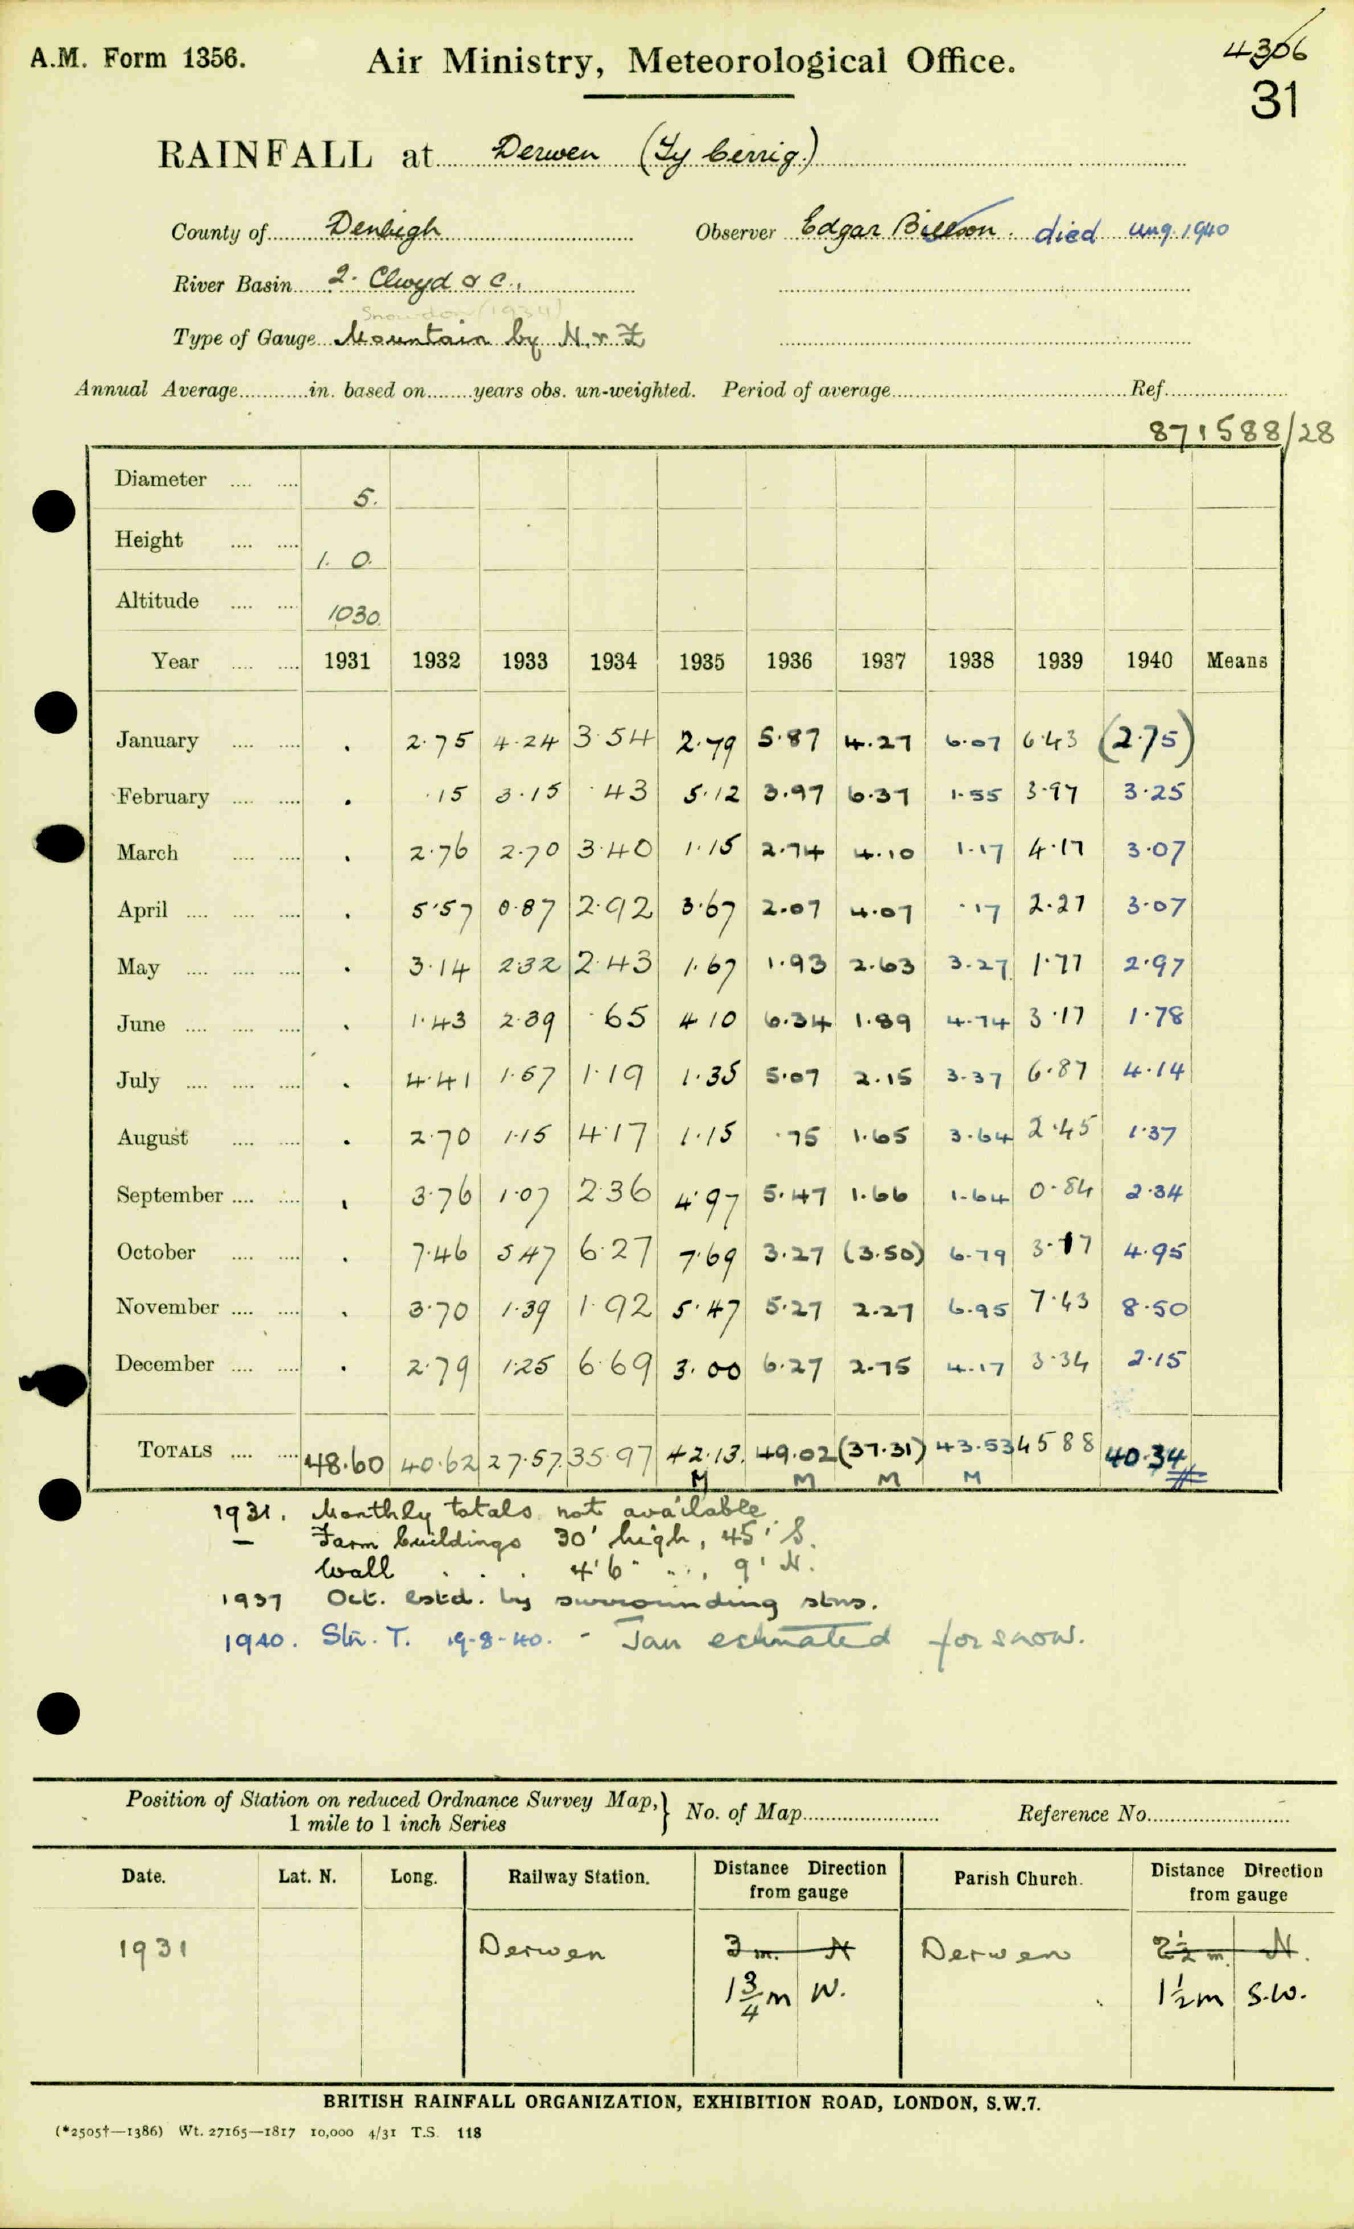 A.M. Form 1356.
Air Ministry, Meteorological Office.
4306
31
RAINFALL at Derwen (Ty Cerrig.)
County of Denbigh Observer Edgar died Aug. 1940
River Basin 2. Clwyd & c.,
Snowdon (1934)
Type of Gauge Mountain by N. & Z
Annual Average in. based on years obs. un-weighted. Period of average Ref.
871588/28
Diameter 5.
Height 1. 0.
Altitude 1030.
Year 1931 1932 1933 1934 1935 1936 1937 1938 1939 1940 Means
January . 2.75 4.24 3 54 2.79 5.87 4.27 6.07 6.43 (2.75)
February . .15 3.15 .43 5.12 3.97 6.37 1.55 3.97 3.25
March . 2.76 2.70 3.40 1.15 2.74 4.10 1.17 4.17 3.07
April . 5.57 0.87 2.92 3.67 2.07 4.07 .17 2.27 3.07
May . 3.14 2.32 2.43 1.67 1.93 2.63 3.27 1.77 2.97
June . 1.43 2.39 .65 4 10 6.34 1.89 4.74 3.17 1.78
July . 4.41 1.57 1.19 1.35 5.07 2.15 3.37 6.87 4.14
August . 2.70 1.15 4.17 1.15 .75 1.65 3.64 2.45 1.37
September . 3.76 1.07 2.36 4.97 5.47 1.66 1.64 0.84 2.34
October . 7.46 5.47 6.27 7.69 3.27 (3.50) 6.79 3.17 4.95
November . 3.70 1.39 1.92 5.47 5.27 2.27 6.95 7.43 8.50
December . 2.79 1.25 6.69 3.00 6.27 2.75 4.17 3.34 2.15
TOTALS 48.60 40.62 27.57 35.97 42.13 49.02 (37.31) 43.53 45 88 40.34
M M M M
1931. Monthly totals not available.
Farm buildings 30' high, 45' S.
Wall . . . 4'6" " , 9' N.
1937 Oct. estd. by surrounding stns.
1940. Stn. T. 19-8-40. - Jan estimated for snow.
Position of Station on reduced Ordnance Survey Map, 1 mile to 1 inch Series } No. of Map Reference No.
Date. Lat. N. Long. Railway Station. Distance Direction from gauge Parish Church. Distance Direction from gauge
1931 Derwen 3 m. N Derwen 2½ m. N.
1¾ m W. 1½ m S.W.
BRITISH RAINFALL ORGANIZATION, EXHIBITION ROAD, LONDON, S.W.7.
(*2505†—1386) Wt. 27165—1817 10,000 4/31 T.S. 118